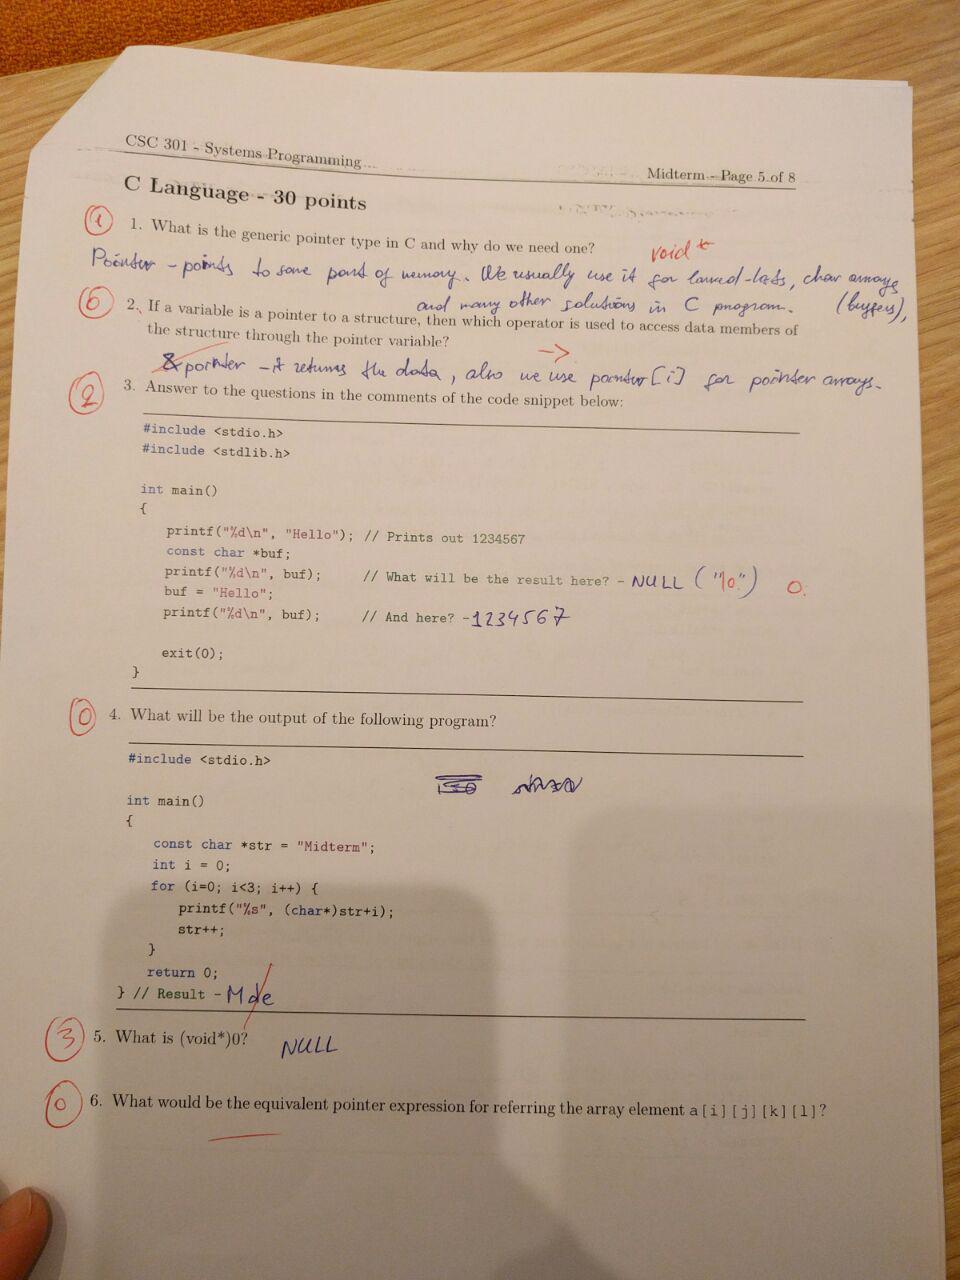 CSC 301 - Systems Programming
Midterm - Page 5 of 8
C Language - 30 points
1
1. What is the generic pointer type in C and why do we need one?
void *
Pointer - points to some part of memory. We usually use it for char arrays (buffers),
and many other solutions in C program.
2. If a variable is a pointer to a structure, then which operator is used to access data members of
the structure through the pointer variable?
->
&pointer - it returns the data, also we use pointer[i] for pointer arrays.
2
3. Answer to the questions in the comments of the code snippet below:
#include <stdio.h>
#include <stdlib.h>
int main()
{
printf("%d\n", "Hello"); // Prints out 1234567
const char *buf;
printf("%d\n", buf); // What will be the result here? - NULL ("\0") 0.
buf = "Hello";
printf("%d\n", buf); // And here? - 1234567
exit(0);
}
0
4. What will be the output of the following program?
#include <stdio.h>
int main()
{
const char *str = "Midterm";
int i = 0;
for (i=0; i<3; i++) {
printf("%s", (char*)str+i);
str++;
}
return 0;
} // Result - Mde
3
5. What is (void*)0?
NULL
0
6. What would be the equivalent pointer expression for referring the array element a[i][j][k][l]?